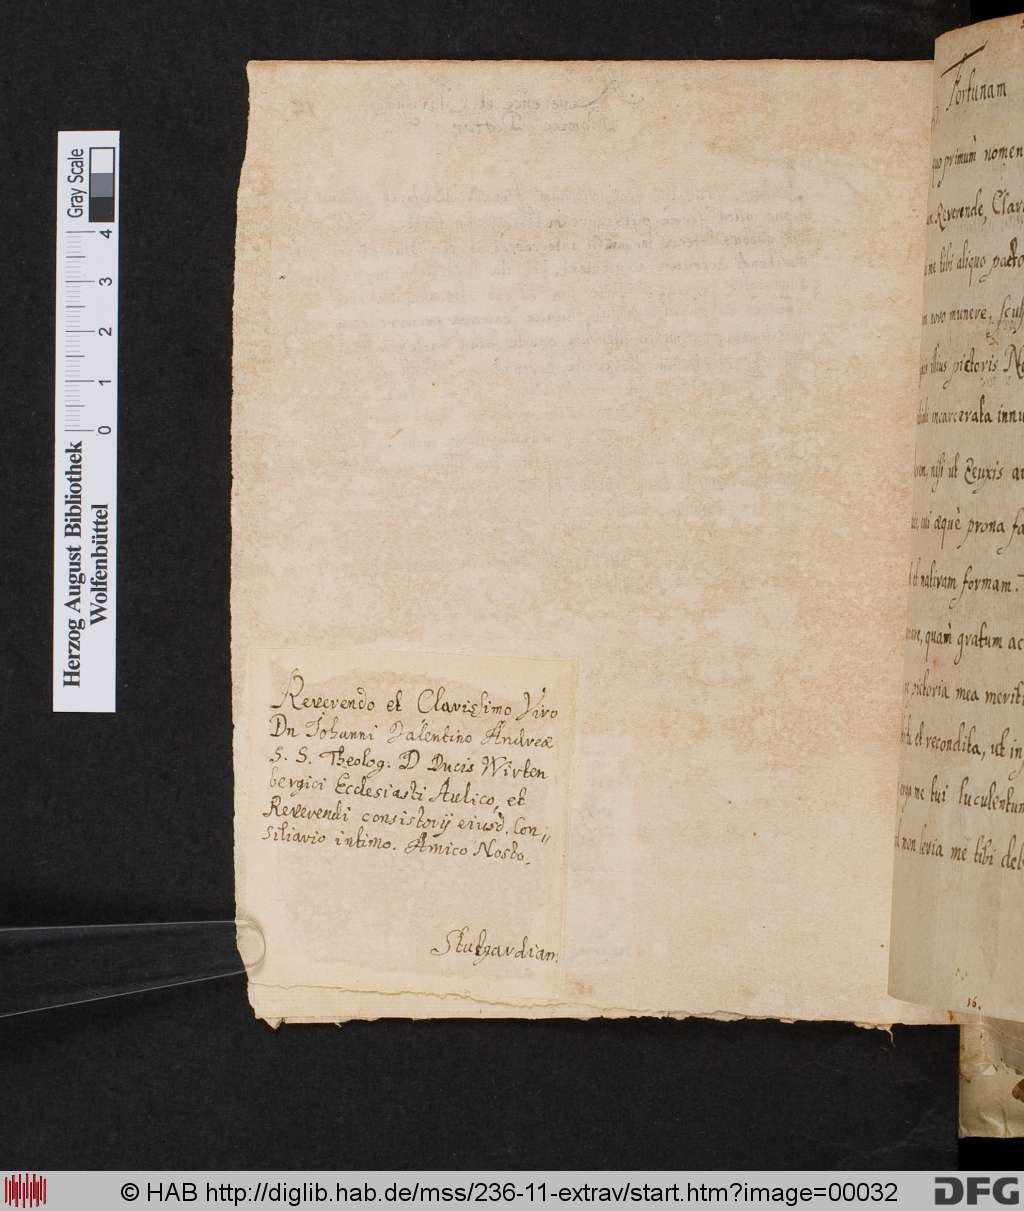 Gray Scale
0 1 2 3 4
Herzog August Bibliothek
Wolfenbüttel
Reverendo et Clarissimo Viro
Dn Johanni Valentino Andreæ
S. S. Theolog. D Ducis Wirten
bergici Ecclesiasti Aulico, et
Reverendi consistorij eiusd. Con〃
siliario intimo. Amico Nostro.
Stutgardiam
Fortunam
primùm nomen
Reverende, Clar
me tibi aliquo pacto
novo munere, Sculp
illius pictoris
incarcerata innu
nisi ut Zeuxis
æquè prona
et nativam formam.
quàm gratum ac
pictoria mea merit
et recondita, ut in
me tui luculentum
non levia me tibi deb
16.
© HAB http://diglib.hab.de/mss/236-11-extrav/start.htm?image=00032
DFG